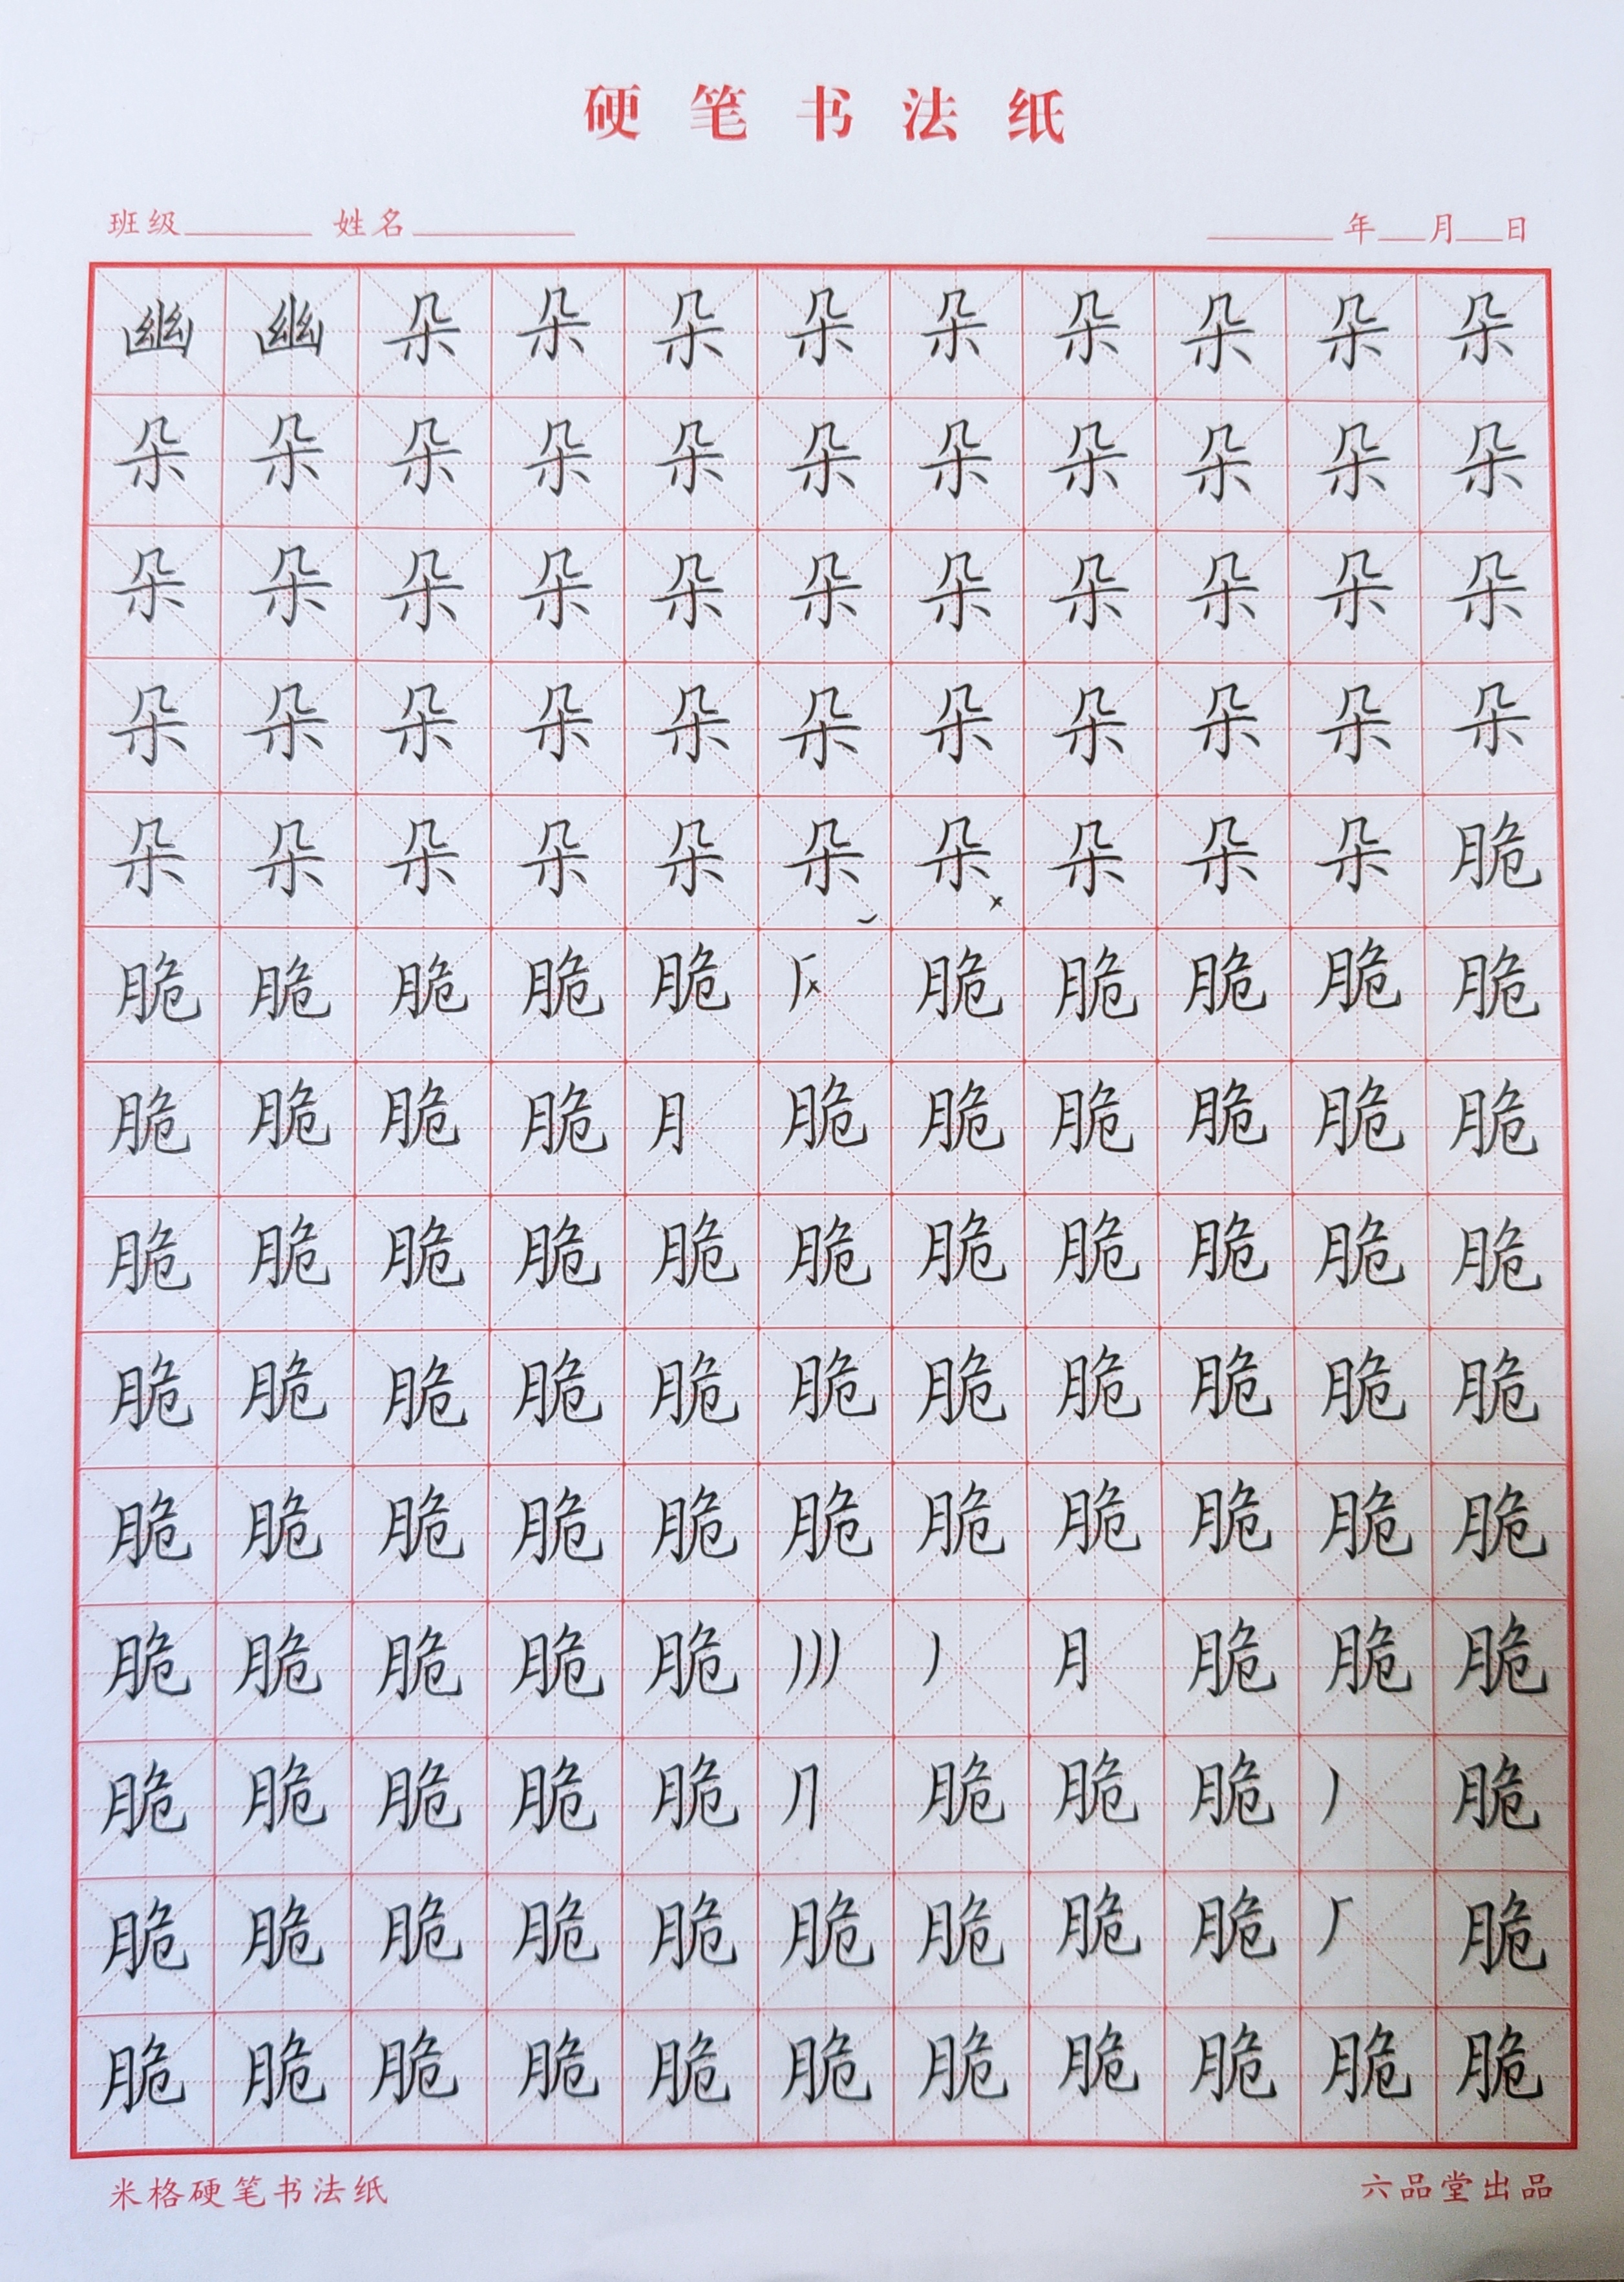 硬笔书法纸
班级 姓名 年 月 日
幽幽朵朵朵朵朵朵朵朵朵
朵朵朵朵朵朵朵朵朵朵朵
朵朵朵朵朵朵朵朵朵朵朵
朵朵朵朵朵朵朵朵朵朵朵
朵朵朵朵朵朵朵朵朵朵脆
脆脆脆脆脆脆脆脆脆脆
脆脆脆脆月脆脆脆脆脆脆
脆脆脆脆脆脆脆脆脆脆脆
脆脆脆脆脆脆脆脆脆脆脆
脆脆脆脆脆脆脆脆脆脆脆
脆脆脆脆脆月脆脆脆
脆脆脆脆脆脆脆脆脆
脆脆脆脆脆脆脆脆脆脆
脆脆脆脆脆脆脆脆脆脆脆
米格硬笔书法纸 六品堂出品